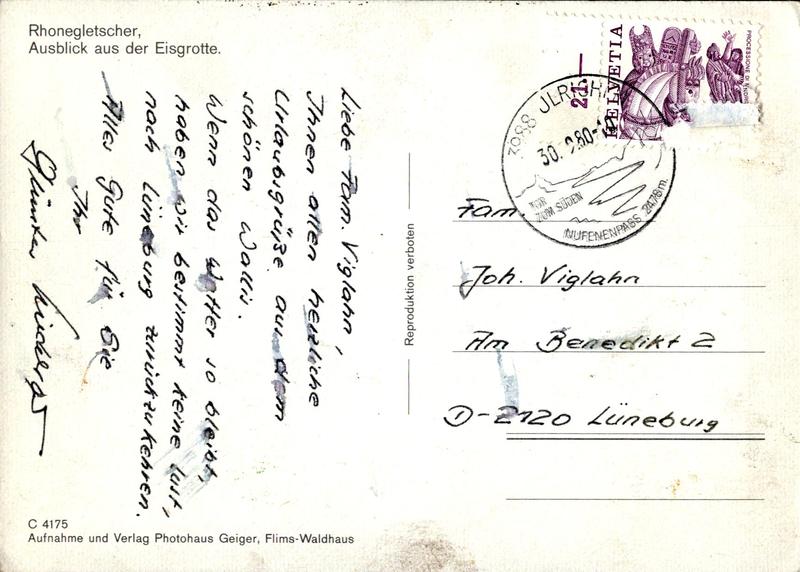 Rhonegletscher,
Ausblick aus der Eisgrotte.
Liebe Fam. Viglahn,
Ihnen allen herzliche
Urlaubsgrüße aus dem
schönen Wallis.
Wenn das Wetter so bleibt,
haben wir bestimmt keine Lust,
nach Lüneburg zurückzukehren.
Alles Gute für Sie
Ihr
Günter
Reproduktion verboten
HELVETIA
PROCESSIONE DI
21
3988 ULRICHEN
30. 80
TOR
ZUM SÜDEN
NUFENENPASS 2478m.
Fam.
Joh. Viglahn
Am Benedikt 2
D-2120 Lüneburg
C 4175
Aufnahme und Verlag Photohaus Geiger, Flims-Waldhaus